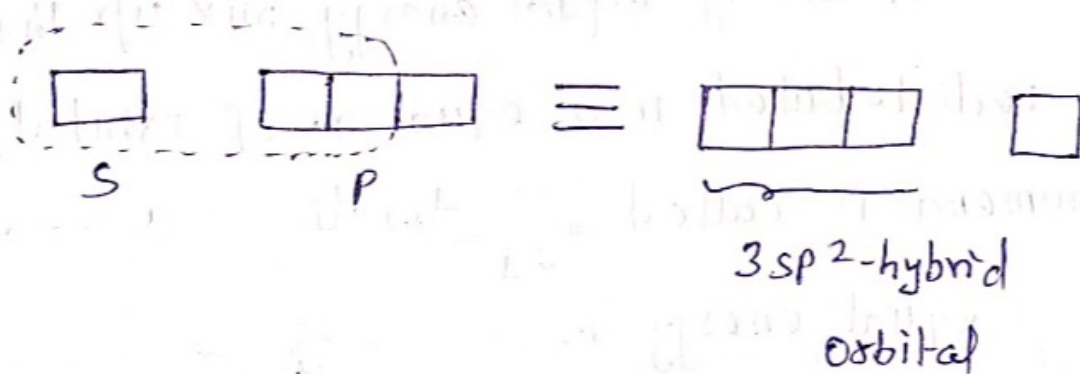 S P
3 sp²-hybrid
orbital